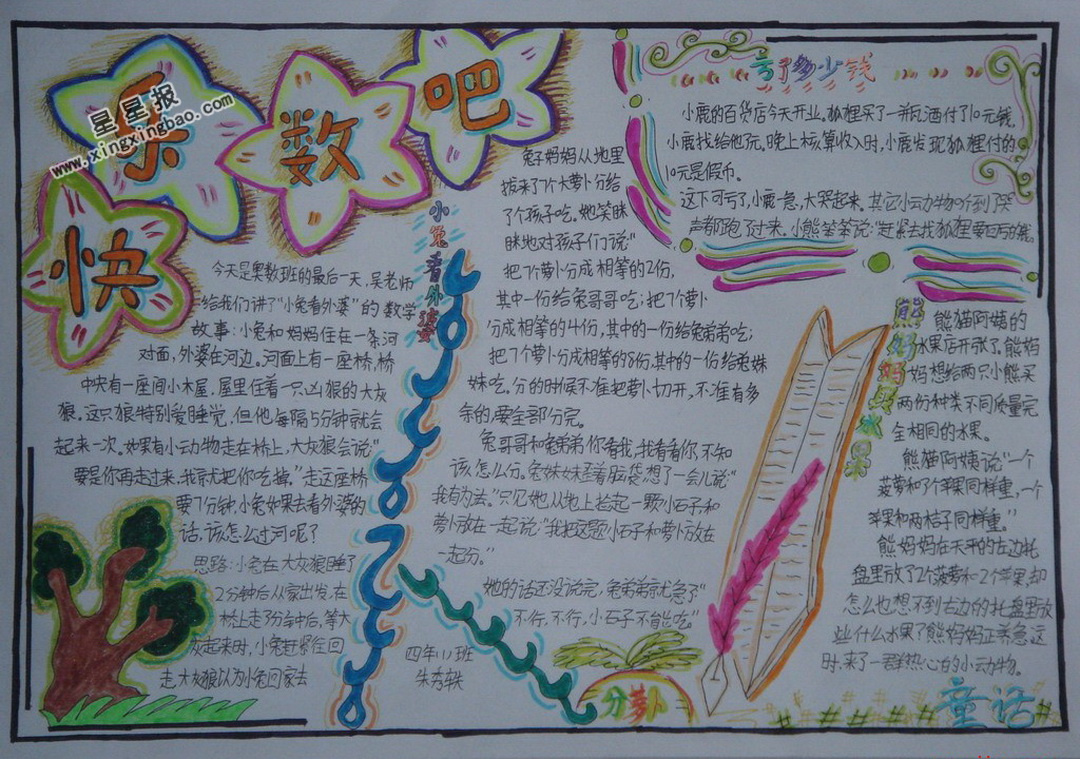 快
乐
数
吧
星星报
www.xingxingbao.com
小兔看外婆
今天是奥数班的最后一天,吴老师
给我们讲了“小兔看外婆”的数学
故事:小兔和妈妈住在一条河
对面,外婆在河边。河面上有一座桥,桥
中央有一座间小木屋,屋里住着一只凶狠的大灰
狼。这只狼特别爱睡觉,但他每隔5分钟就会
起来一次。如果有小动物走在桥上,大灰狼会说“
要是你再走过来,我就把你吃掉。”走这座桥
要7分钟,小兔如果去看外婆的
话,该怎么过河呢?
思路:小兔在大灰狼睡了
2分钟后从家出发,在
桥上走了3分钟后,等大
灰起来时,小兔赶紧往回
走,大灰狼以为小兔回家去
兔子妈妈从地里
拔来了7个大萝卜分给
了个孩子吃。她笑眯
眯地对孩子们说“
把7个萝卜分成相等的2份,
其中一份给兔哥哥吃;把7个萝卜
分成相等的4份,其中的一份给兔弟弟吃;
把7个萝卜分成相等的8份,其中的一份给兔妹
妹吃。分的时候不准把萝卜切开,不准有多
余的,要全部分完。
兔哥哥和兔弟弟你看我,我看看你,不知
该怎么分。兔妹妹歪着脑袋想了一会儿说“
我有办法。”只见她从地上拾起一颗小石子和
萝卜放在一起说:“我把这颗小石子和萝卜放在
一起分。”
她的话还没说完,兔弟弟就急了“
不行,不行,小石子不能吃。”
四年(1)班
朱秀轶
分萝卜
亏了多少钱
小鹿的百货店今天开业。狐狸买了一瓶酒付了10元钱,
小鹿找给他元。晚上核算收入时,小鹿发现狐狸付的
10元是假币。
这下可亏了,小鹿一急,大哭起来。其它小动物听到了哭
声都跑了过来。小熊笨笨说:“赶紧去找狐狸要回亏的钱。
熊妈妈买水果
熊猫阿姨的
水果店开张了。熊妈
妈想给两只小熊买
两份种类不同质量完
全相同的水果。
熊猫阿姨说“一个
菠萝和了个苹果同样重,一个
苹果和两桔子同样重。”
熊妈妈在天平的左边托
盘里放了2个菠萝和2个苹果,却
怎么也想不到右边的托盘里放
些什么水果了熊妈妈正着急这
时,来了一群热心的小动物。
童话